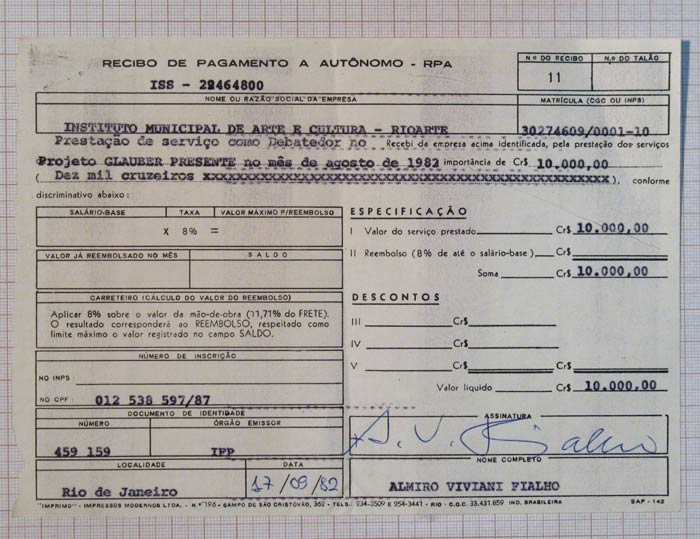 RECIBO DE PAGAMENTO A AUTÔNOMO - RPA
Nº DO RECIBO
Nº DO TALÃO
11
ISS - 22464800
NOME OU RAZÃO SOCIAL DA EMPRESA
MATRÍCULA (CGC OU INPS)
INSTITUTO MUNICIPAL DE ARTE E CULTURA - RIOARTE
30274609/0001-10
Prestação de serviço como Debatedor no Recebi da empresa acima identificada, pela prestação dos serviços
Projeto GLAUBER PRESENTE no mês de agosto de 1982 importância de Cr$ 10.000,00
( Dez mil cruzeiros xxxxxxxxxxxxxxxxxxxxxxxxxxxxxxxxxxxxxxxxxxxxxxxxxxxxx), conforme
discriminativo abaixo:
SALÁRIO-BASE
TAXA
VALOR MÁXIMO P/REEMBOLSO
X 8% =
VALOR JÁ REEMBOLSADO NO MÊS
SALDO
CARRETEIRO (CÁLCULO DO VALOR DO REEMBOLSO)
Aplicar 8% sobre o valor da mão-de-obra (11,71% do FRETE).
O resultado corresponderá ao REEMBOLSO, respeitado como
limite máximo o valor registrado no campo SALDO.
NÚMERO DE INSCRIÇÃO
NO INPS:
NO CPF: 012 538 597/87
DOCUMENTO DE IDENTIDADE
NÚMERO
ÓRGÃO EMISSOR
459 159
IFP
LOCALIDADE
DATA
Rio de Janeiro
17/09/82
ESPECIFICAÇÃO
I Valor do serviço prestado Cr$ 10.000,00
II Reembolso (8% de até o salário-base) Cr$
Soma Cr$ 10.000,00
DESCONTOS
III Cr$
IV Cr$
V Cr$
Valor líquido Cr$ 10.000,00
ASSINATURA
A. V. Fialho
NOME COMPLETO
ALMIRO VIVIANI FIALHO
"IMPRIMO" - IMPRESSOS MODERNOS LTDA. - N.º 196 - CAMPO DE SÃO CRISTÓVÃO, 362 - TELS. 234-3509 E 254-3441 - RIO - C.G.C. 33.431.859 IND. BRASILEIRA
SAF - 142